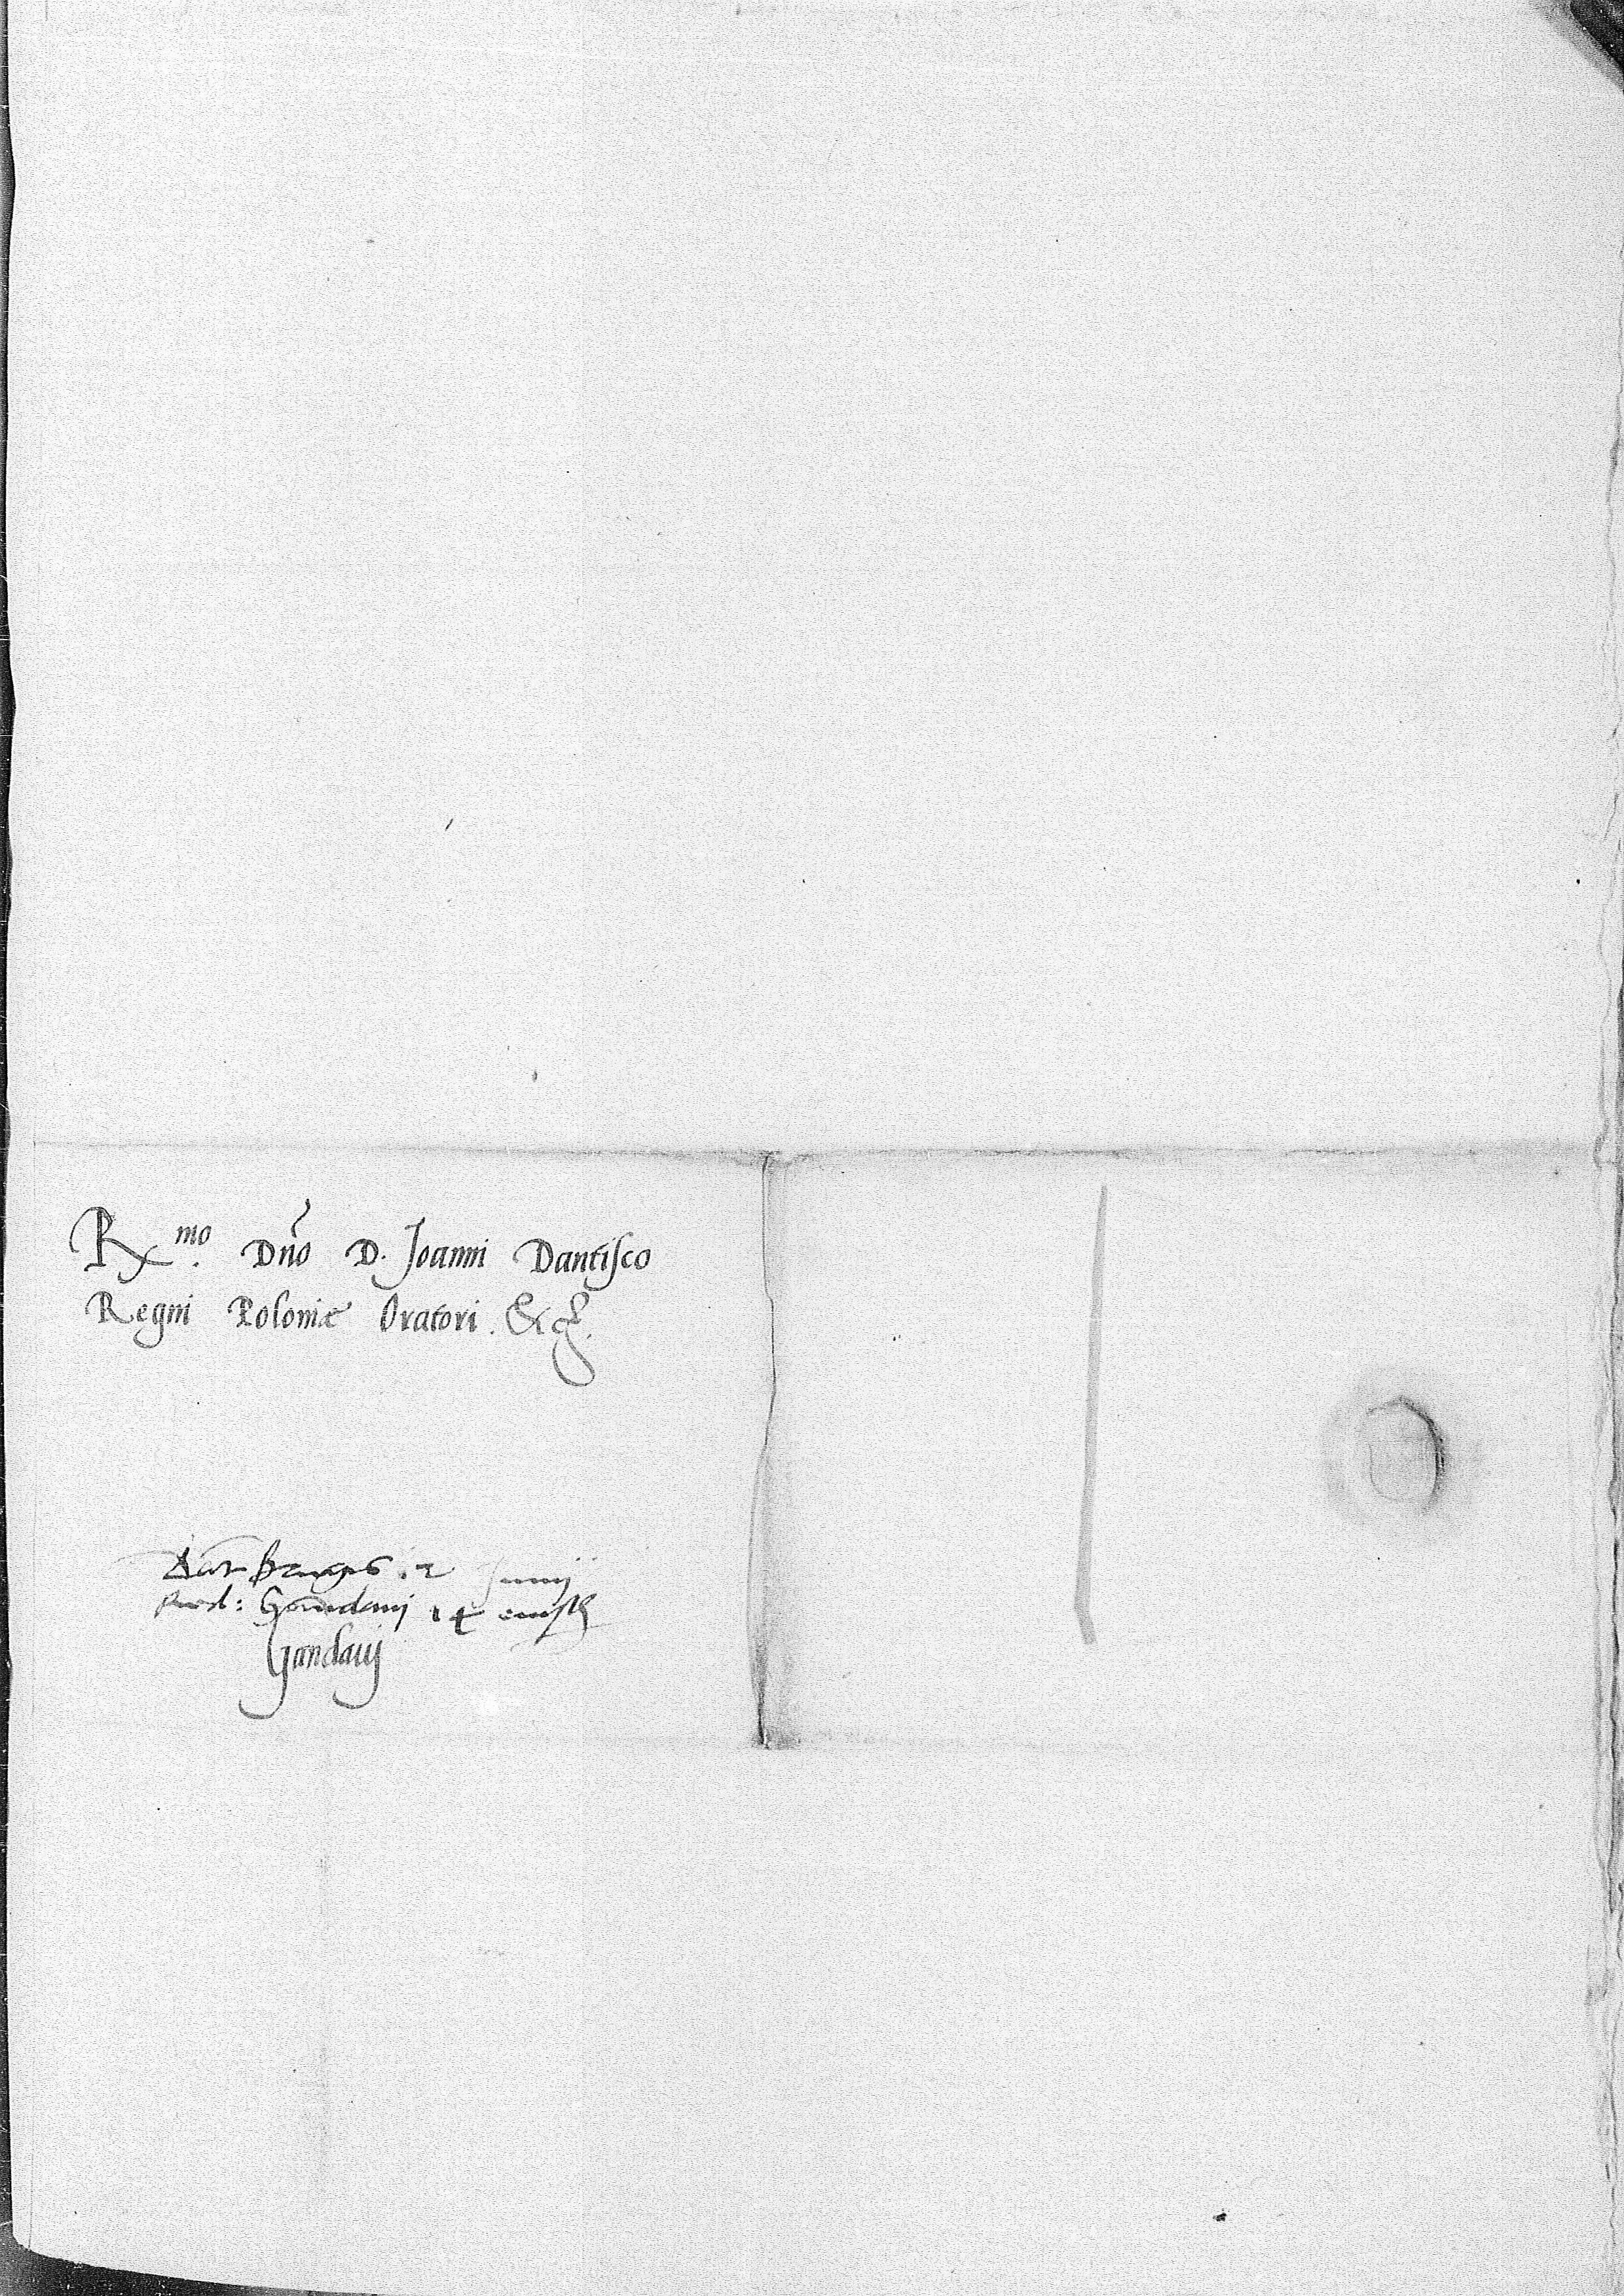 Rmo. Dño D. Joanni Dantisco
Regni Poloniæ Oratori. &c.
Dat Brugis .2 Junij
Red: Gandavj 14 eiusdem
Gandavj